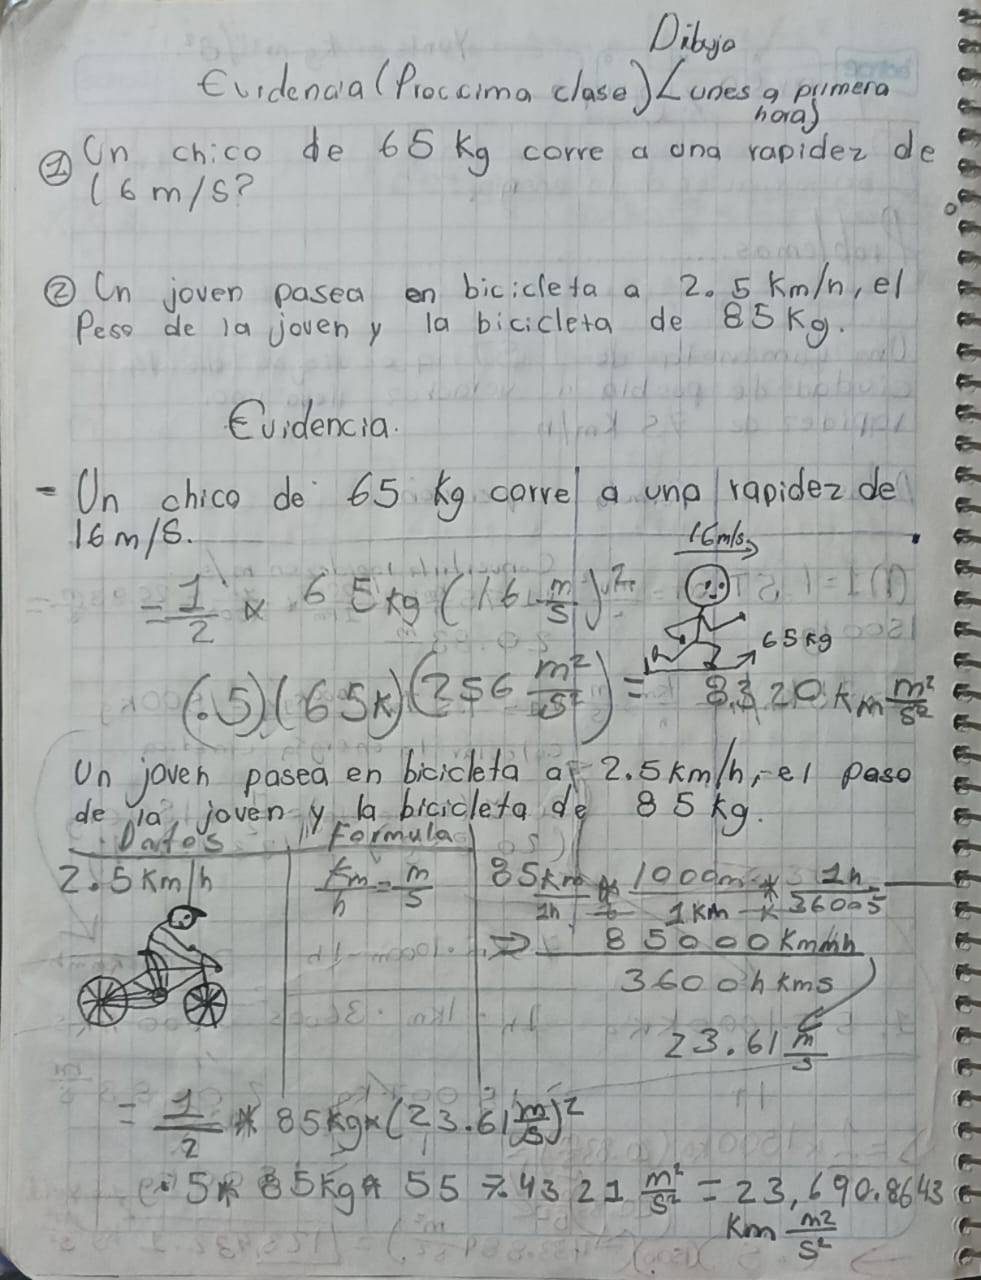 Dibujo
Evidencia (Proccima clase) Lunes a primera
hora)
① Un chico de 65 Kg corre a una rapidez de
16 m/s?
② Un joven pasea en bicicleta a 2.5 Km/h, el
Peso de la joven y la bicicleta de 85 Kg.
Evidencia.
- Un chico de 65 kg corre a una rapidez de
16 m/s.
16m/s
= 1/2 * 65kg (16 m/s)²
65kg
(.5)(65k)(256 m²/s²) = 8,320 km m²/s²
Un joven pasea en bicicleta a 2.5 km/h, el paso
de la joven y la bicicleta de 85 kg.
Datos Formula
2.5 Km/h km/h = m/s 85km/1h * 1000m/1km * 1h/3600s
⇒ 85000 Kmmh / 3600 h kms
23.61 m/s
= 1/2 * 85kg * (23.61 m/s)²
.5 * 85kg * 557.4321 m²/s² = 23,690.8643
Km m²/s²